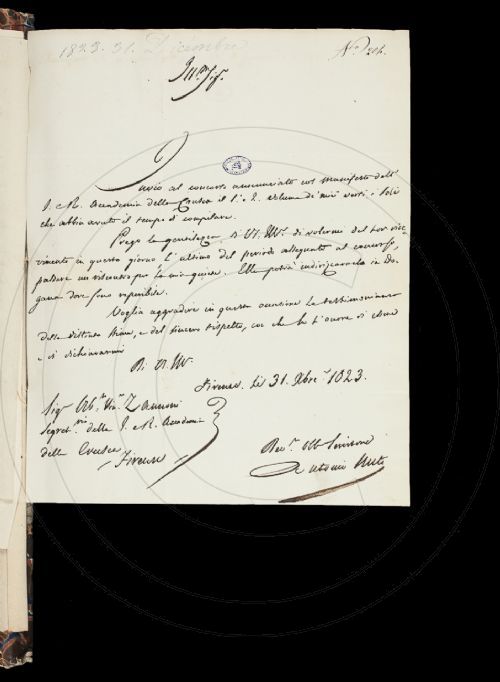 1823. 31. Dicembre
N.º 304.
Ill.mo Sig.
Invio al concorso annunziato col manifesto dell'
I. e R. Accademia della Crusca il 1.º e 2. volume di miei versi, i soli
che abbia avuto il tempo di compilare.
Prego la gentilezza di VS. Ill. di volermi del lor rice-
vimento in questo giorno l'ultimo del periodo assegnato al concorso,
passare un riscontro per la mia quiete. Ella potrà indirizzarmelo in Do-
gana dove sono reperibile.
Voglia aggradire in questa occasione le testimonianze
della distinta stima, e del sincero rispetto, con che ho l'onore di essere
e di dichiararmi
Di VS. Ill.
Firenze li 31. Xbre 1823.
Sig.r Ab.te Zannoni
Segret.rio della I. e R. Accademia
della Crusca
Firenze
Dev.mo Obb. Servitore
Antonio